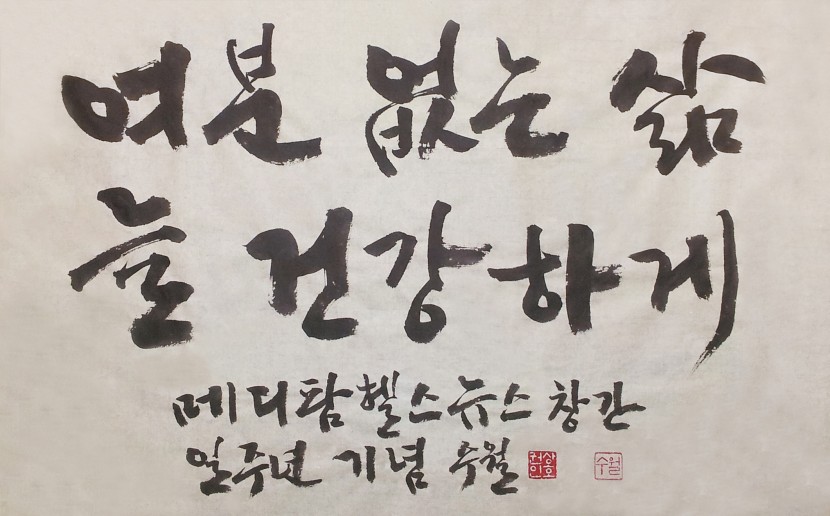 여분 없는 삶
늘 건강하게
메디팜헬스뉴스 창간
일주년 기념 수월
수월